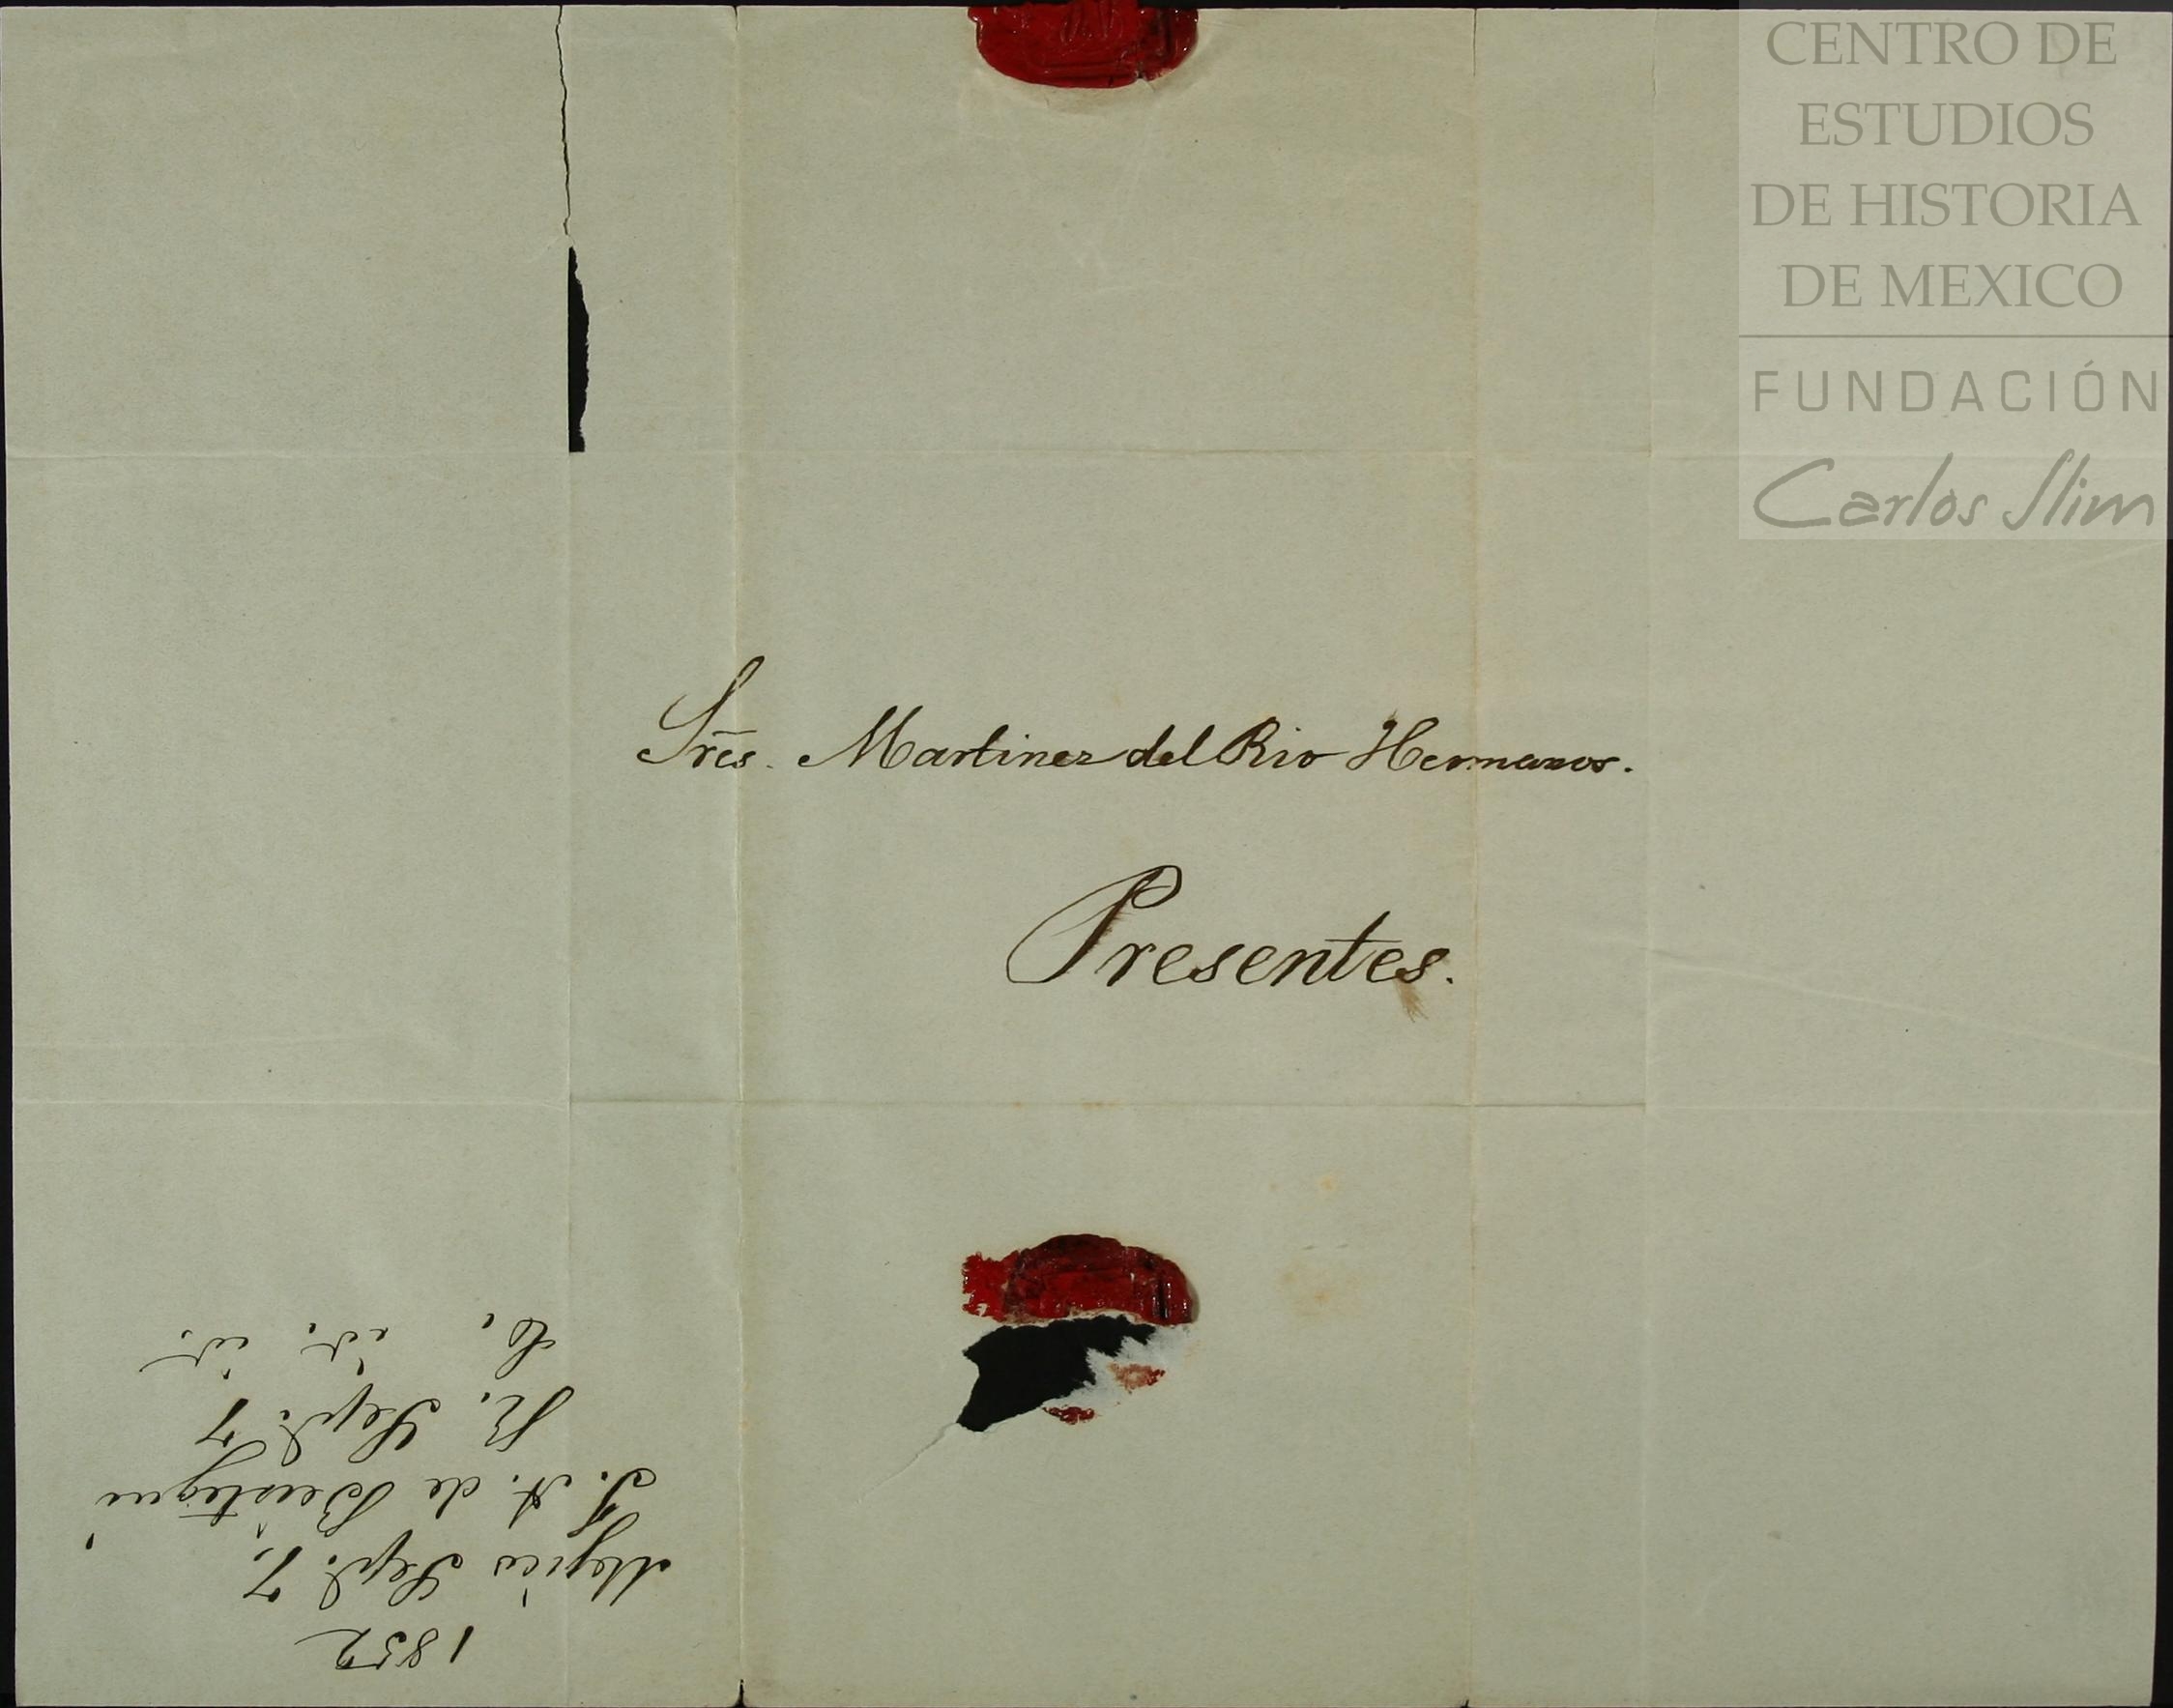 CENTRO DE
ESTUDIOS
DE HISTORIA
DE MEXICO
FUNDACIÓN
Carlos Slim
Sres. Martinez del Rio Hermanos.
Presentes.
1852
Mejico Sept. 7.
J. A. de Beistegui
R. Sept. 7
C. id. id.